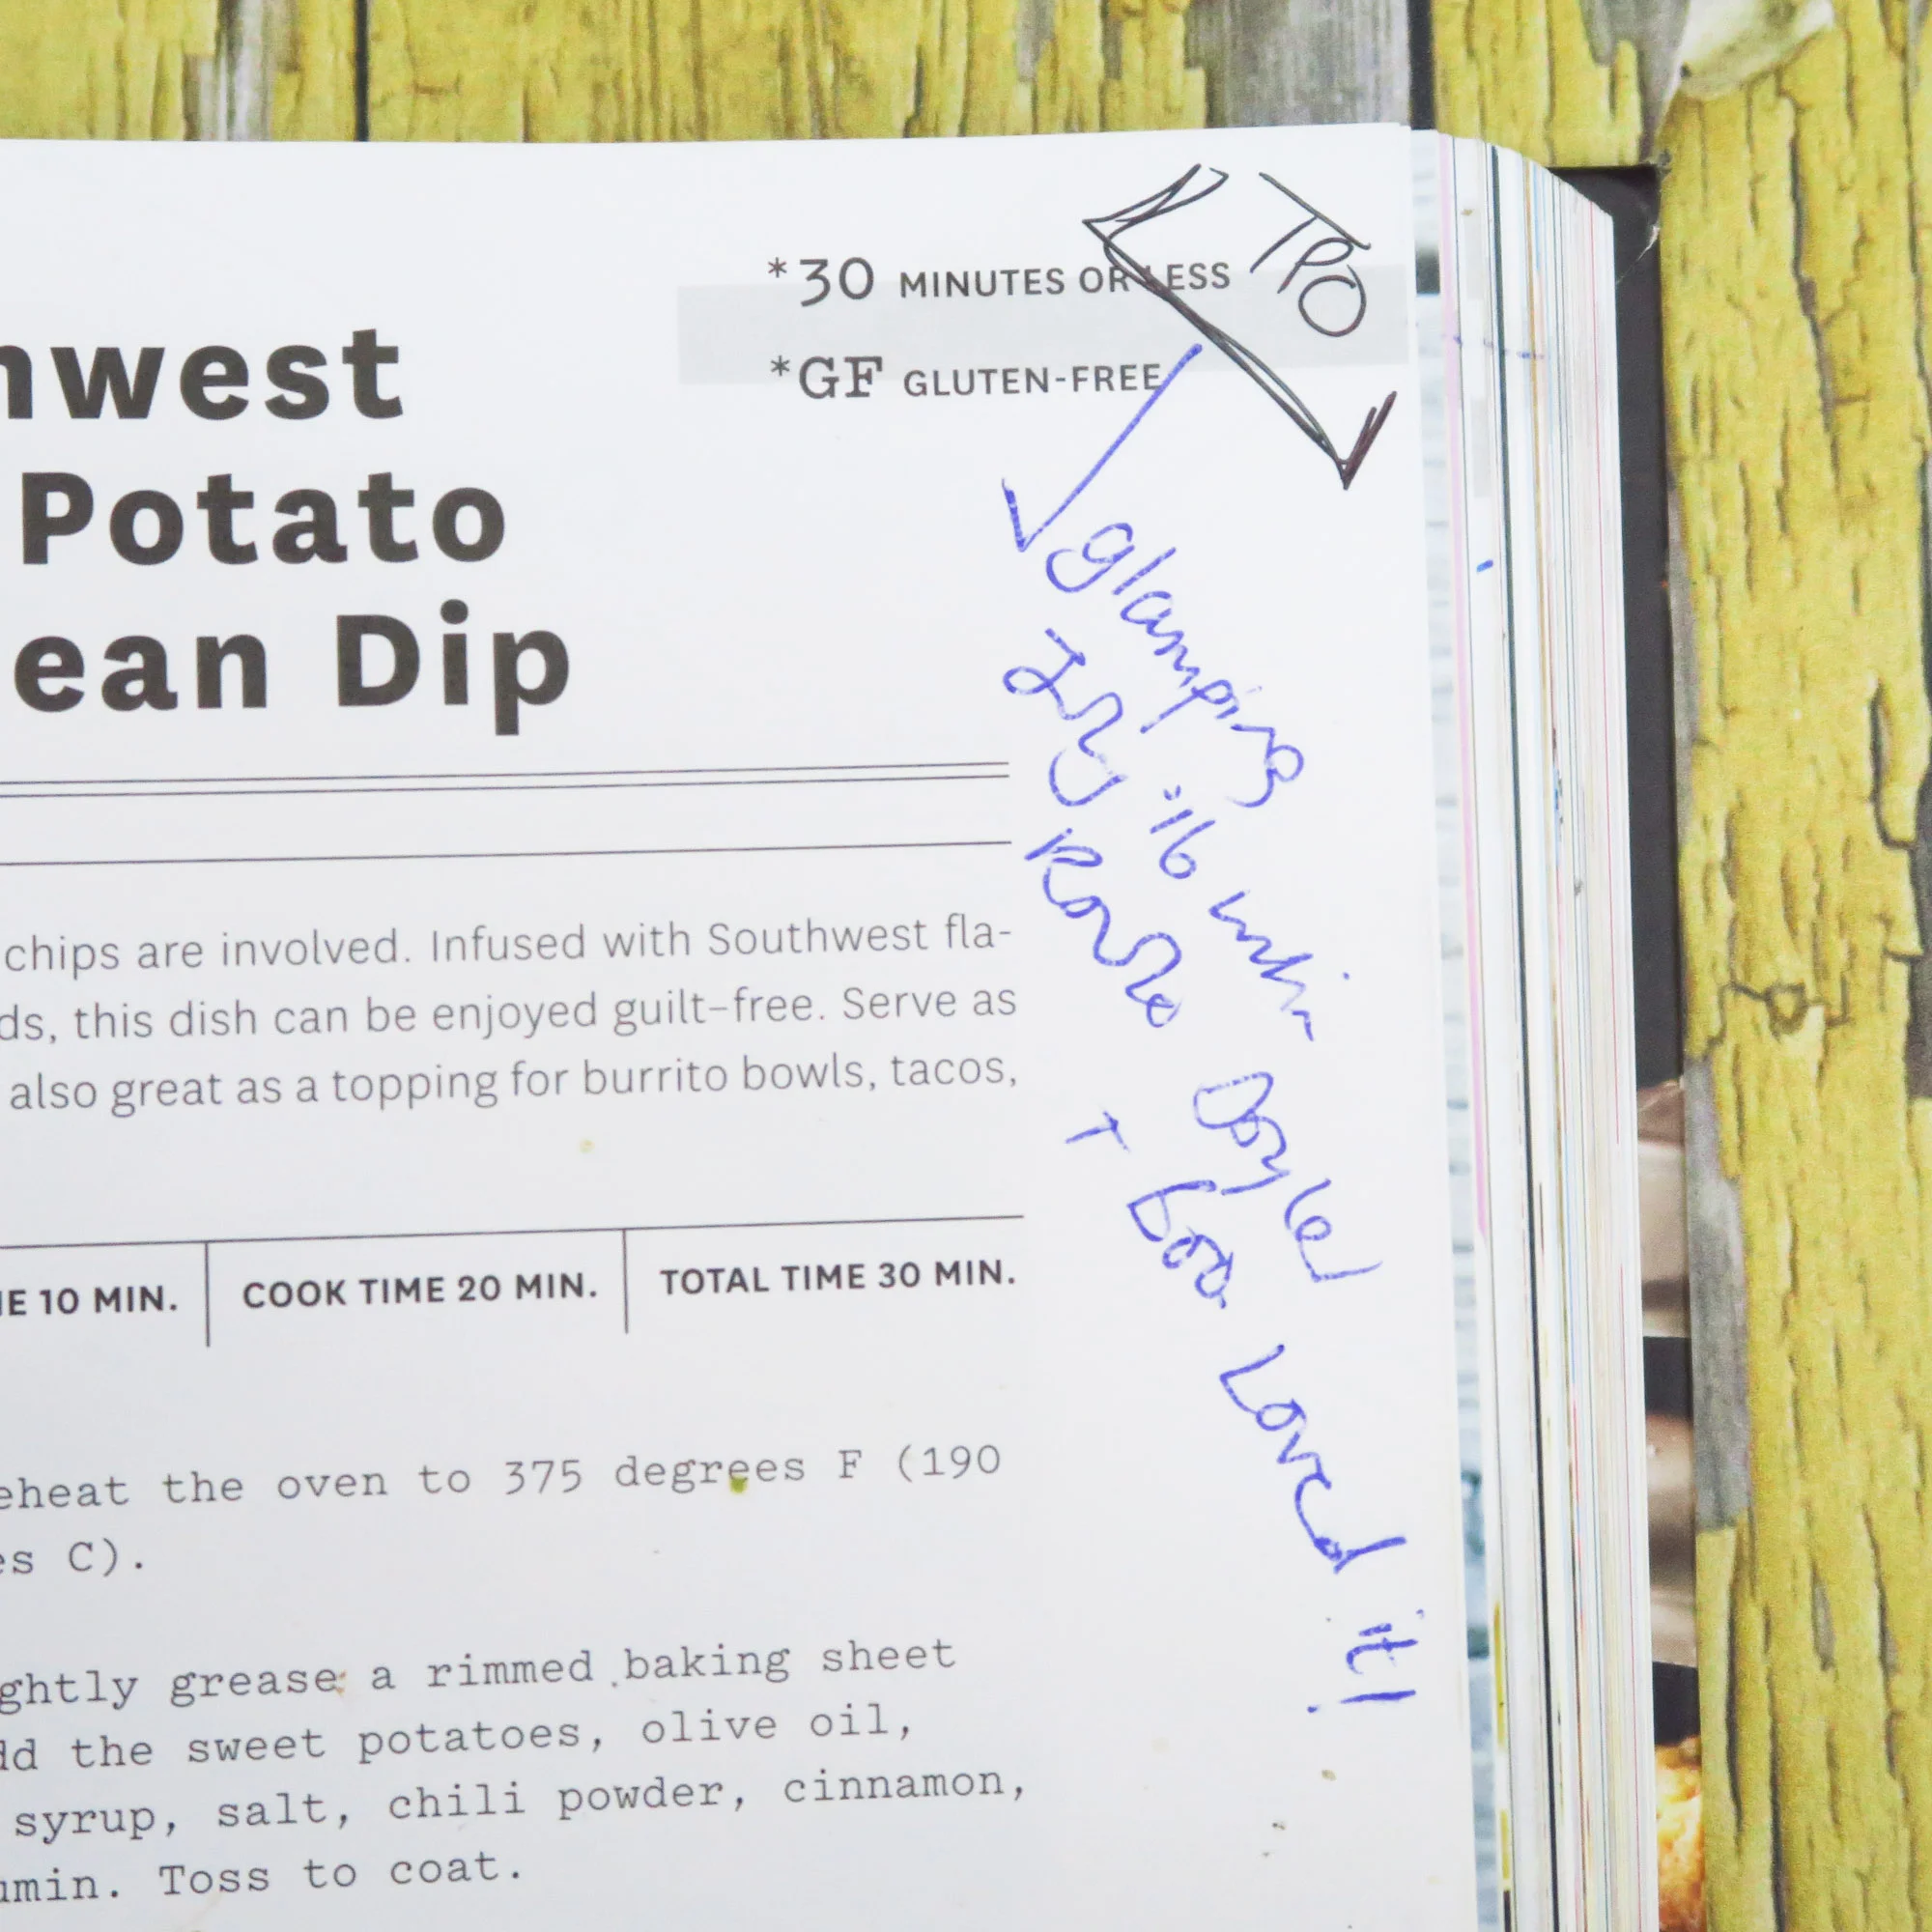 *30 MINUTES OR LESS
*GF GLUTEN-FREE
TPO
nwest
Potato
ean Dip
glamping
'16 with
Doyle
+ Loved it!
chips are involved. Infused with Southwest fla-
ds, this dish can be enjoyed guilt-free. Serve as
also great as a topping for burrito bowls, tacos,
E 10 MIN.
COOK TIME 20 MIN.
TOTAL TIME 30 MIN.
eheat the oven to 375 degrees F (190
es C).
ghtly grease a rimmed baking sheet
dd the sweet potatoes, olive oil,
syrup, salt, chili powder, cinnamon,
umin. Toss to coat.